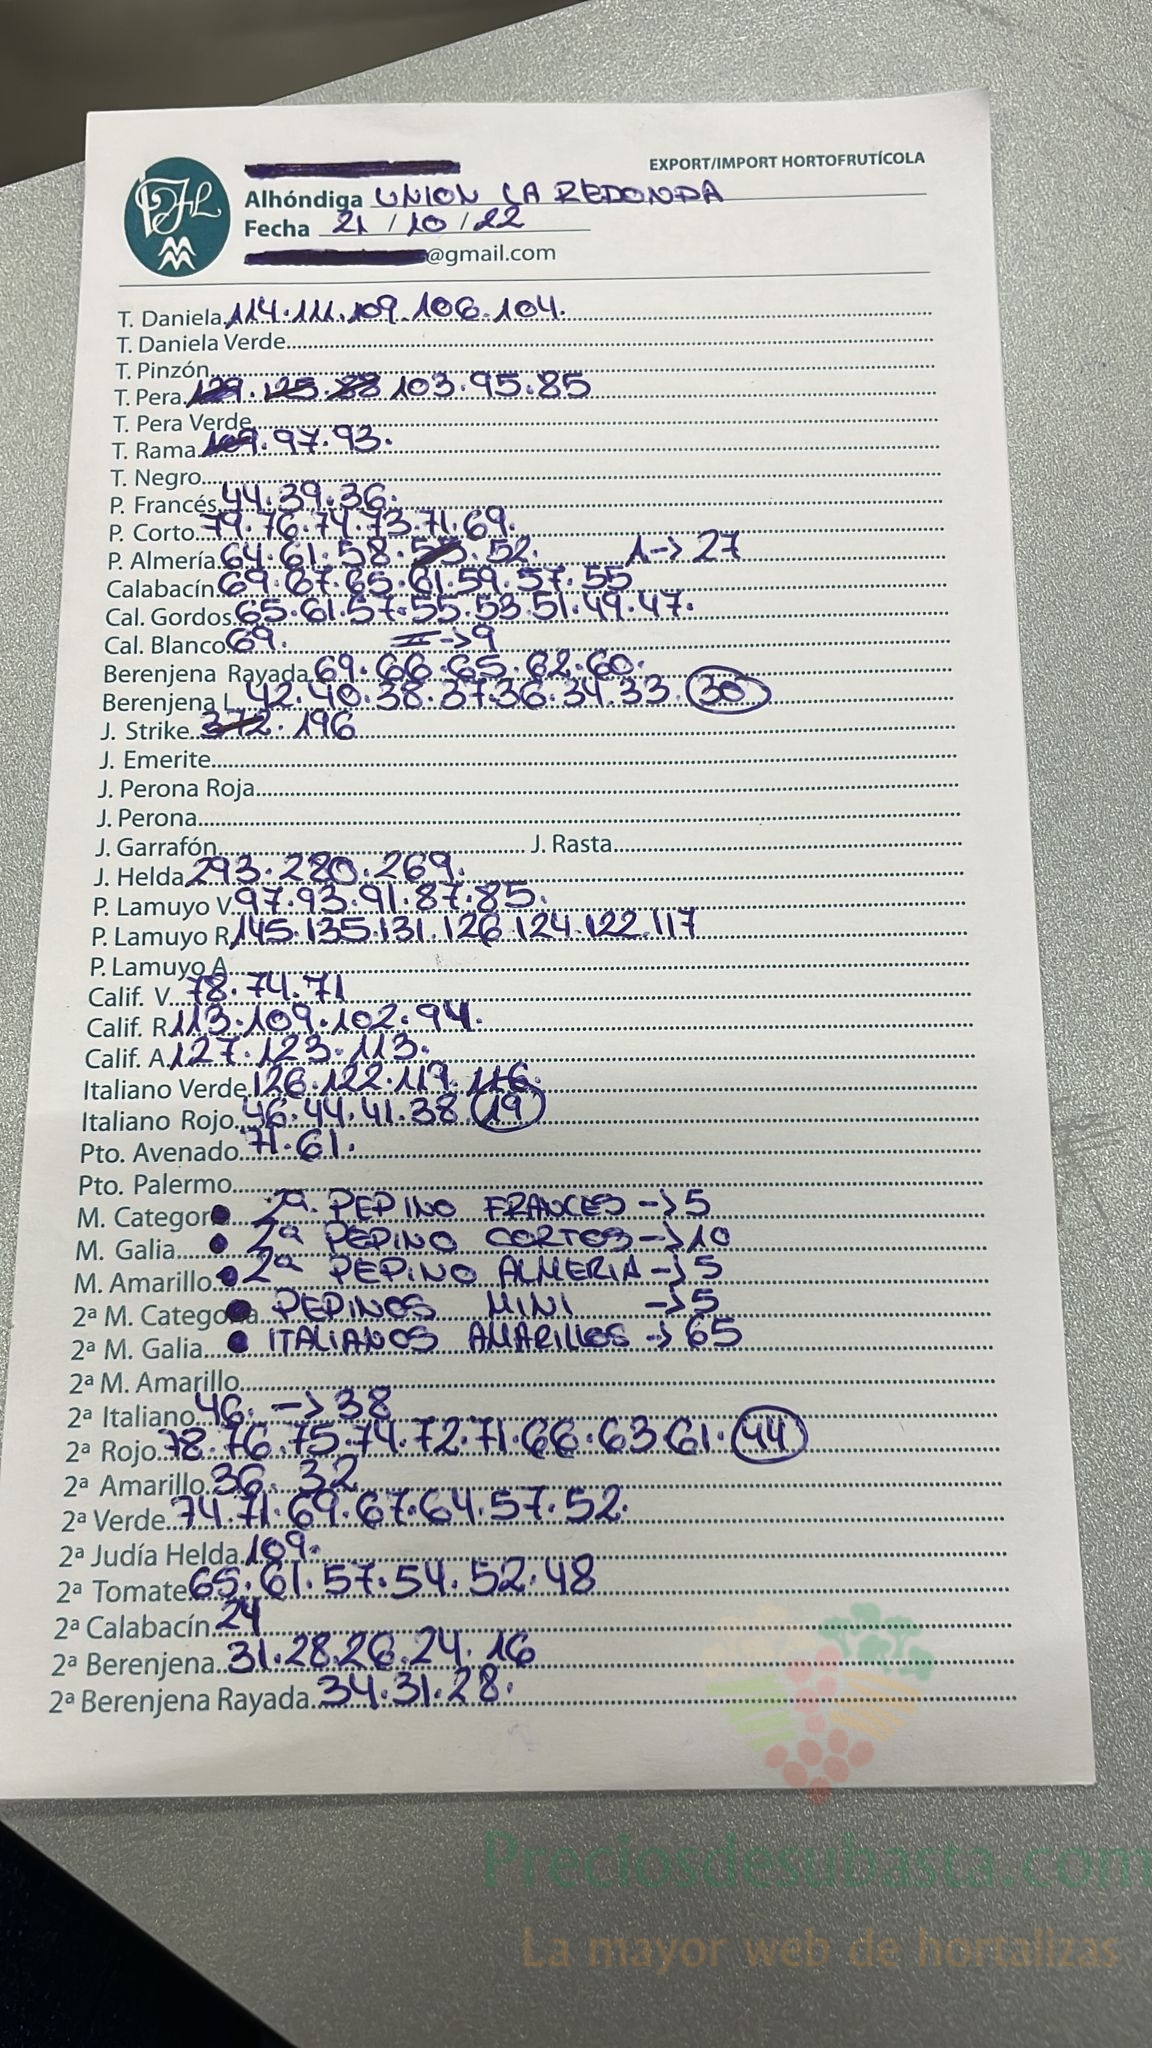 EXPORT/IMPORT HORTOFRUTÍCOLA
Alhóndiga UNION LA REDONDA
Fecha 21 / 10 / 22
@gmail.com
T. Daniela 114. 111. 109. 106. 104.
T. Daniela Verde
T. Pinzón
T. Pera 129. 125. 88 103. 95. 85
T. Pera Verde
T. Rama 109. 97. 93.
T. Negro
P. Francés 44. 39. 36.
P. Corto 79. 76. 74. 73. 71. 69.
P. Almería 64. 61. 58. 55. 52. 1 -> 27
Calabacín 69. 67. 65. 61. 59. 57. 55
Cal. Gordos 65. 61. 57. 55. 53. 51. 49. 47.
Cal. Blanco 69. = -> 9
Berenjena Rayada 69. 66. 65. 62. 60.
Berenjena L. 42. 40. 38. 37. 36. 34. 33. 30
J. Strike 372. 196
J. Emerite
J. Perona Roja
J. Perona
J. Garrafón J. Rasta
J. Helda 293. 280. 269.
P. Lamuyo V. 97. 93. 91. 87. 85.
P. Lamuyo R 145. 135. 131. 126. 124. 122. 117
P. Lamuyo A
Calif. V. 78. 74. 71
Calif. R 113. 109. 102. 94.
Calif. A 127. 123. 113.
Italiano Verde 126. 122. 119. 116.
Italiano Rojo 46. 44. 41. 38 19
Pto. Avenado 71. 61.
Pto. Palermo
M. Categor 2ª PEPINO FRANCES -> 5
M. Galia 2ª PEPINO CORTOS -> 10
M. Amarillo 2ª PEPINO ALMERIA -> 5
2ª M. Categoría PEPINOS MINI -> 5
2ª M. Galia ITALIANOS AMARILLOS -> 65
2ª M. Amarillo
2ª Italiano 46. -> 38
2ª Rojo 78. 76. 75. 74. 72. 71. 66. 63 61. 44
2ª Amarillo 36. 32
2ª Verde 74. 71. 69. 67. 64. 57. 52.
2ª Judía Helda 109.
2ª Tomate 65. 61. 57. 54. 52. 48
2ª Calabacín 24
2ª Berenjena 31. 28. 26. 24. 16
2ª Berenjena Rayada 34. 31. 28.
Preciosdesubasta.com
La mayor web de hortalizas